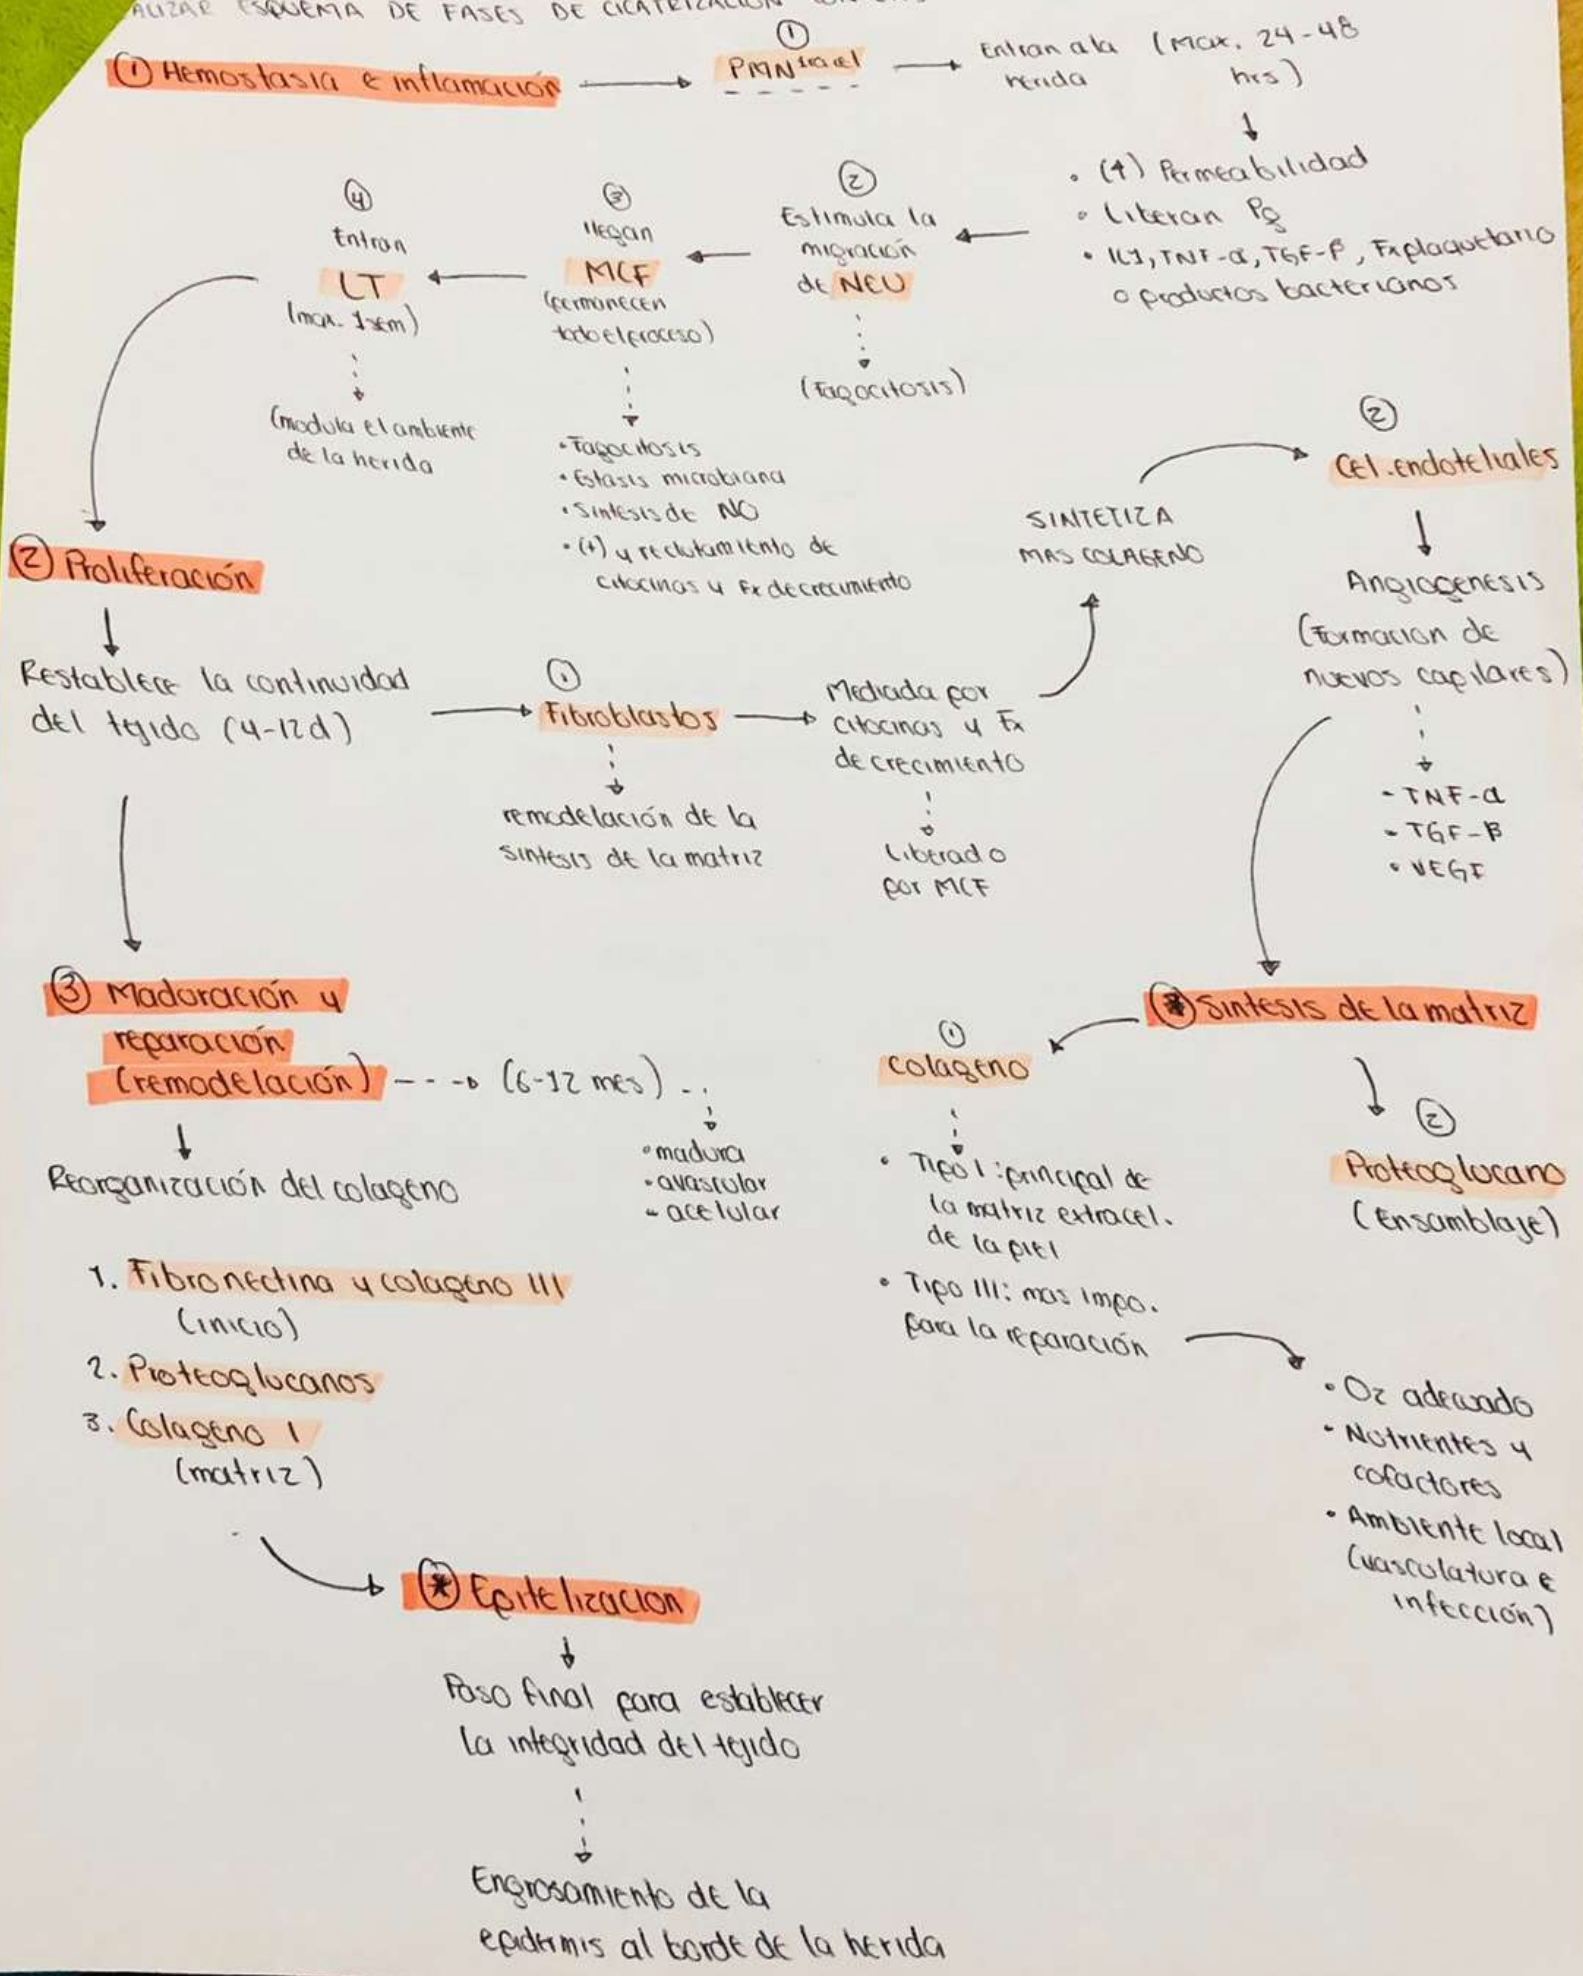 ALIZAR ESQUEMA DE FASES DE CICATRIZACIÓN
① Hemostasia e inflamación
①
PMN 1ra cel
Entran a la
herida
(max. 24-48
hrs)
• (↑) Permeabilidad
• Liberan Pg
• IL1, TNF-α, TGF-β, Fx plaquetario
o productos bacterianos
②
Estimula la
migración
de NEU
(Fagocitosis)
③
llegan
MCF
(permanecen
todo el proceso)
• Fagocitosis
• Estasis microbiana
• Sintesis de NO
• (+) y reclutamiento de
citocinas y Fx de crecimiento
④
Entran
LT
(max. 1 sem)
(modula el ambiente
de la herida
② Proliferación
Restablece la continuidad
del tejido (4-12d)
①
Fibroblastos
remodelación de la
sintesis de la matriz
Mediada por
citocinas y Fx
de crecimiento
Liberado
por MCF
SINTETIZA
MAS COLAGENO
②
Cel. endoteliales
Angiogenesis
(Formacion de
nuevos capilares)
- TNF-α
- TGF-β
• VEGF
③ Maduración y
reparación
(remodelación)
(6-12 mes)
• madura
• avascular
- acelular
Reorganización del colageno
1. Fibronectina y colageno III
(inicio)
2. Proteoglucanos
3. Colageno I
(matriz)
* Sintesis de la matriz
①
colageno
• Tipo I: principal de
la matriz extracel.
de la piel
• Tipo III: mas impo.
para la reparación
②
Proteoglucano
(Ensamblaje)
• O2 adecuado
- Nutrientes y
cofactores
• Ambiente local
(vasculatura e
infección)
* Epitelizacion
Paso final para establecer
la integridad del tejido
Engrosamiento de la
epidermis al borde de la herida